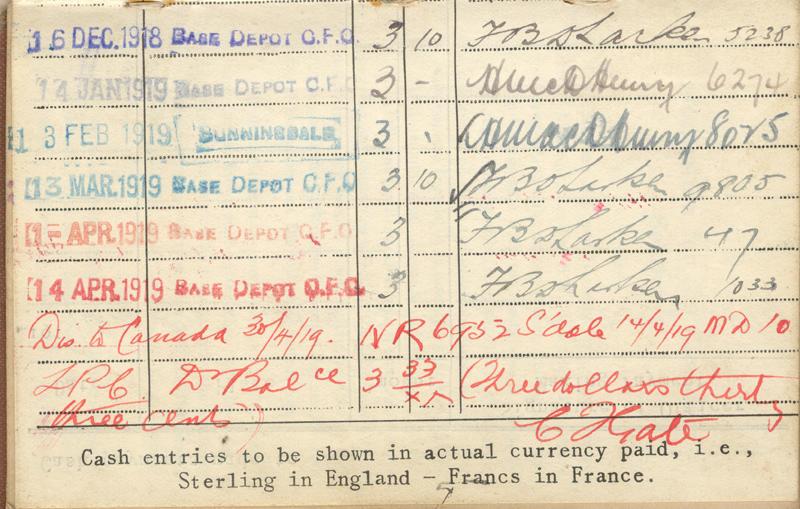 16 DEC. 1918 BASE DEPOT C.F.C. 3 10 5238
14 JAN 1919 BASE DEPOT C.F.C 3 - 6274
13 FEB 1919 SUNNINGDALE 3 8025
13 MAR. 1919 BASE DEPOT C.F.C 3 10 9805
APR. 1919 BASE DEPOT C.F.C 3 47
14 APR. 1919 BASE DEPOT C.F.C. 3 1033
Dis. to Canada 30/4/19. NR 6952 S'dale 14/4/19 MD 10
LPC. Dr Balce 3 33/xx (Three dollars thirty
three cents)
Cash entries to be shown in actual currency paid, i.e.,
Sterling in England — Francs in France.